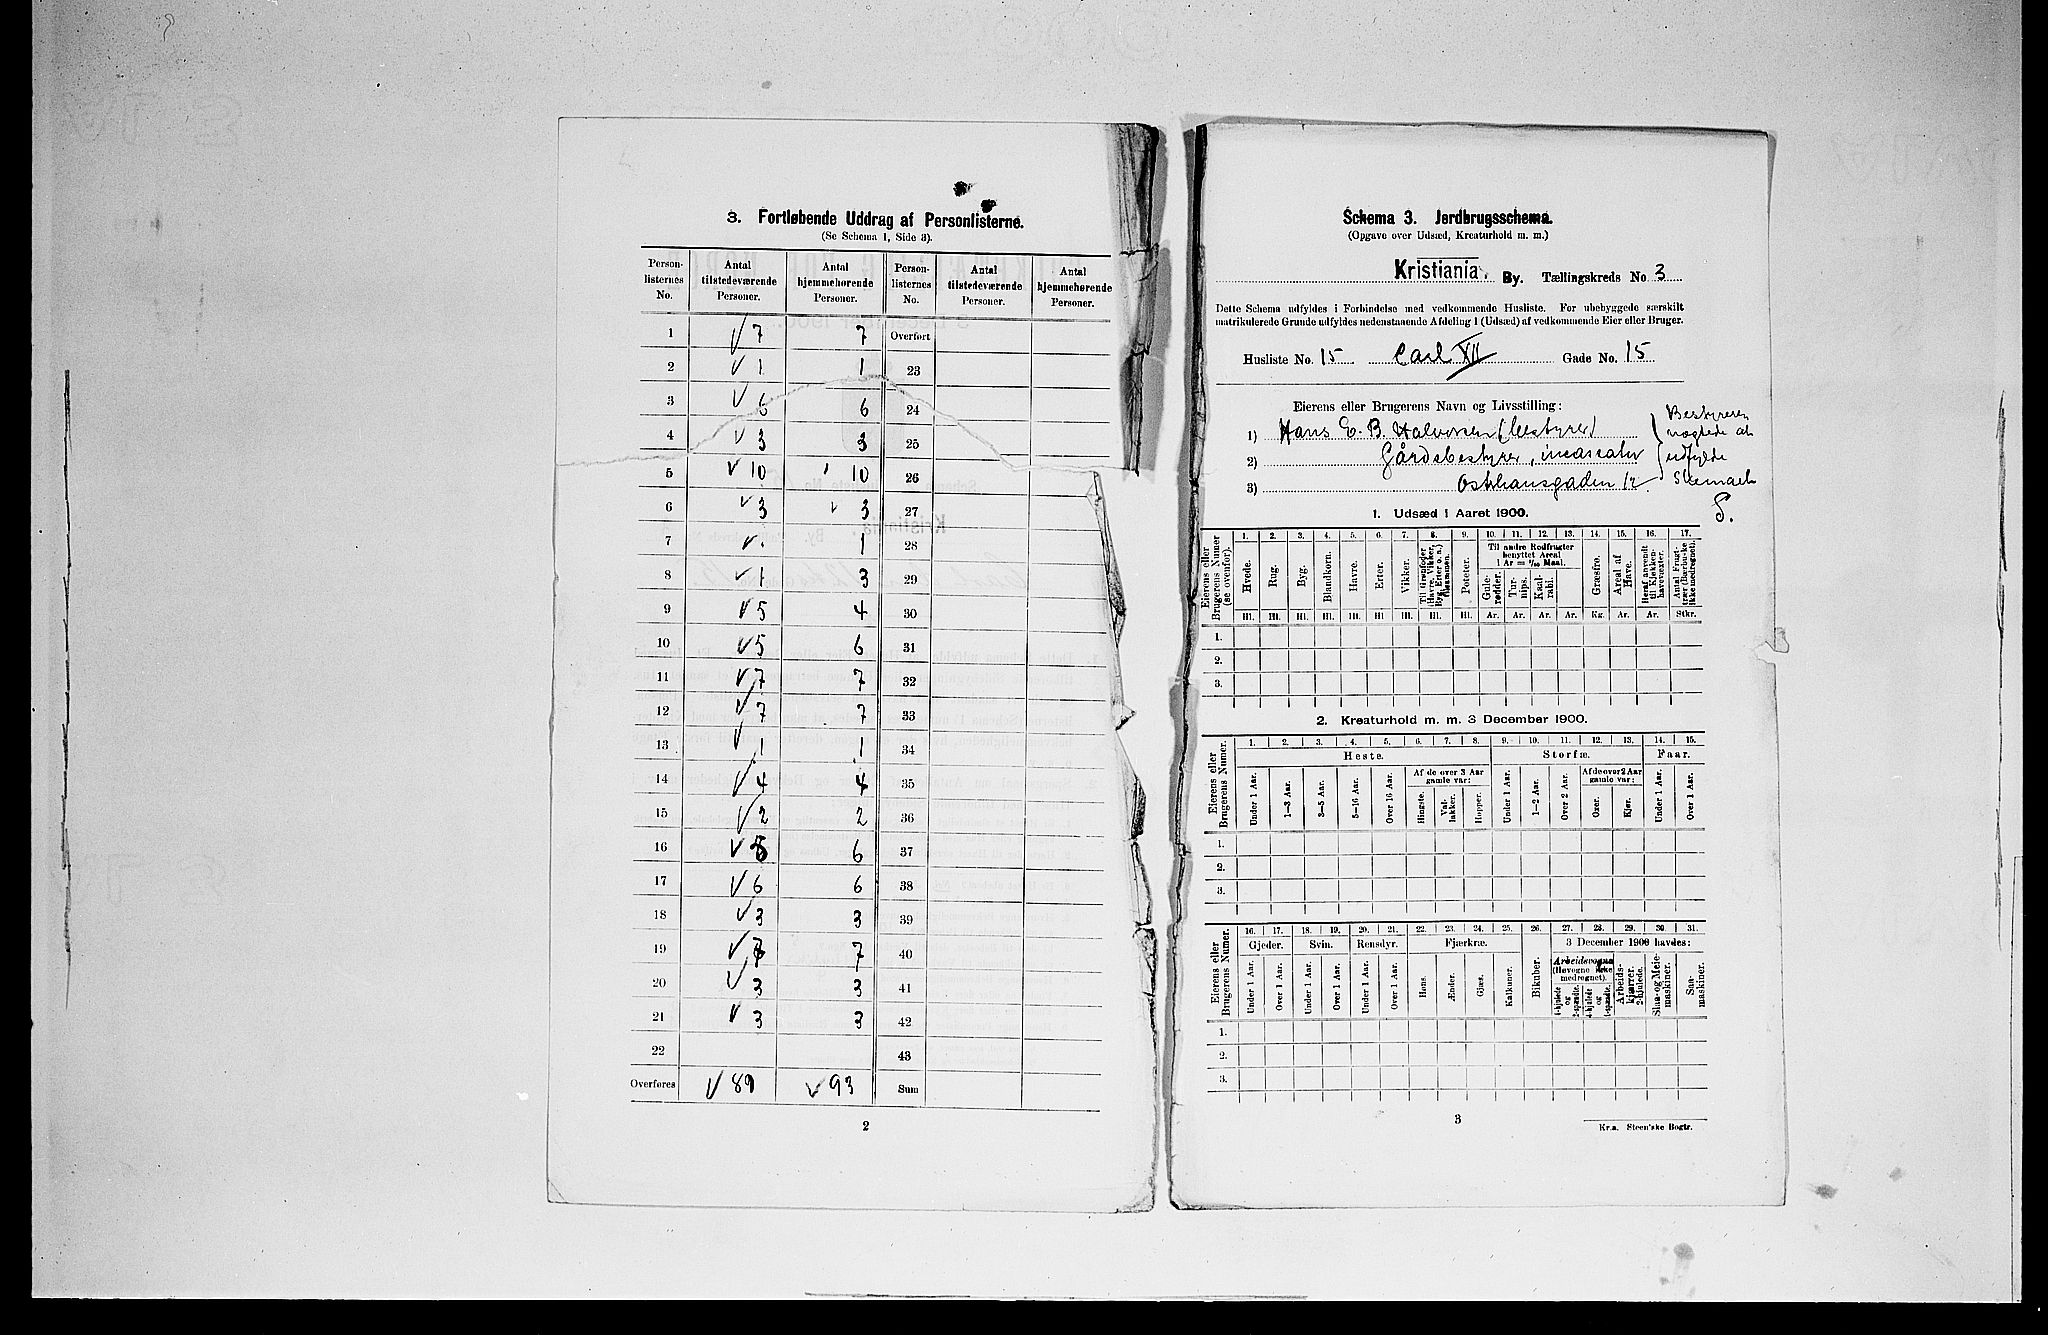 3. Fortløbende Uddrag af Personlisterne.
(Se Schema 1, Side 3).
Person-listernes No. Antal tilstedeværende Personer. Antal hjemmehørende Personer. Person-listernes No. Antal tilstedeværende Personer. Antal hjemmehørende Personer.
1 √ 7 7 Overført
2 √ 1 1 23
3 √ 6 6 24
4 √ 3 3 25
5 √ 10 10 26
6 √ 3 √ 3 27
7 √ . 1 28
8 √ 1 3 29
9 √ 5 4 30
10 √ 5 6 31
11 √ 7 7 32
12 √ 7 7 33
13 √ 1 1 34
14 √ 4 4 35
15 √ 2 2 36
16 √ 6 37
17 √ 6 6 38
18 √ 3 3 39
19 √ 7 7 40
20 √ 3 3 41
21 √ 3 3 42
22 43
Overføres √ 89 √ 93 Sum
2
Schema 3. Jordbrugsschema.
(Opgave over Udsæd, Kreaturhold m. m.)
Kristiania. By. Tællingskreds No. 3
Dette Schema udfyldes i Forbindelse med vedkommende Husliste. For ubebyggede særskilt
matrikulerede Grunde udfyldes nedenstaaende Afdeling 1 (Udsæd) af vedkommende Eier eller Bruger.
Husliste No. 15 Carl XII Gade No. 15
Eierens eller Brugerens Navn og Livsstilling:
1) Hans E. B. Halvorsen (bestyrer)
2) Gårdsbestyrer, incassator
3) 12
Bestyreren
nægtede at
udfylde
Skemaet
S.
1. Udsæd i Aaret 1900.
Eierens eller Brugerens Numer (se ovenfor).
1. 2. 3. 4. 5. 6. 7. 8. 9. 10. 11. 12. 13. 14. 15. 16. 17.
Hvede. Rug. Byg. Blandkorn. Havre. Erter. Vikker. Til Grønfoder (Havre, Vikker, Byg, Erter o. a.) tilsammen. Poteter.
Til andre Rodfrugter benyttet Areal 1 Ar = 1/10 Maal.
Gule-rødder. Tur-nips. Kaal-rabi. Græsfrø. Areal af Have. Heraf anvendt til Kjøkken-havevæxter. Antal Frugt-trær (Bærbuske ikke medregnet).
Hl. Hl. Hl. Hl. Hl. Hl. Hl. Hl. Hl. Ar. Ar. Ar. Ar. Kg. Ar. Ar. Stkr.
1.
2.
3.
2. Kreaturhold m. m. 3 December 1900.
Eierens eller Brugerens Numer.
1. 2. 3. 4. 5. 6. 7. 8. 9. 10. 11. 12. 13. 14. 15.
Heste. Storfæ. Faar.
Af de over 3 Aar gamle var: Af de over 2 Aar gamle var:
Under 1 Aar. 1—3 Aar. 3—5 Aar. 5—16 Aar. Over 16 Aar. Hingste. Val-lakker. Hopper. Under 1 Aar. 1—2 Aar. Over 2 Aar. Oxer. Kjør. Under 1 Aar. Over 1 Aar.
1.
2.
3.
Eierens eller Brugerens Numer.
16. 17. 18. 19. 20. 21. 22. 23. 24. 25. 26. 27. 28. 29. 30. 31.
Gjeder. Svin. Rensdyr. Fjærkræ. 3 December 1900 havdes:
Under 1 Aar. Over 1 Aar. Under 1 Aar. Over 1 Aar. Under 1 Aar. Over 1 Aar. Høns. Ænder. Gjæs. Kalkuner. Bikuber.
Arbeidsvogne (Høvogne ikke medregnet).
4-hjulede og 2-spændte. 4-hjulede og 1-spændte. Arbeids-kjærrer. 2-hjulede. Slaa- og Meie-maskiner. Saa-maskiner.
1.
2.
3.
3
Kr.a. Steen'ske Bogtr.